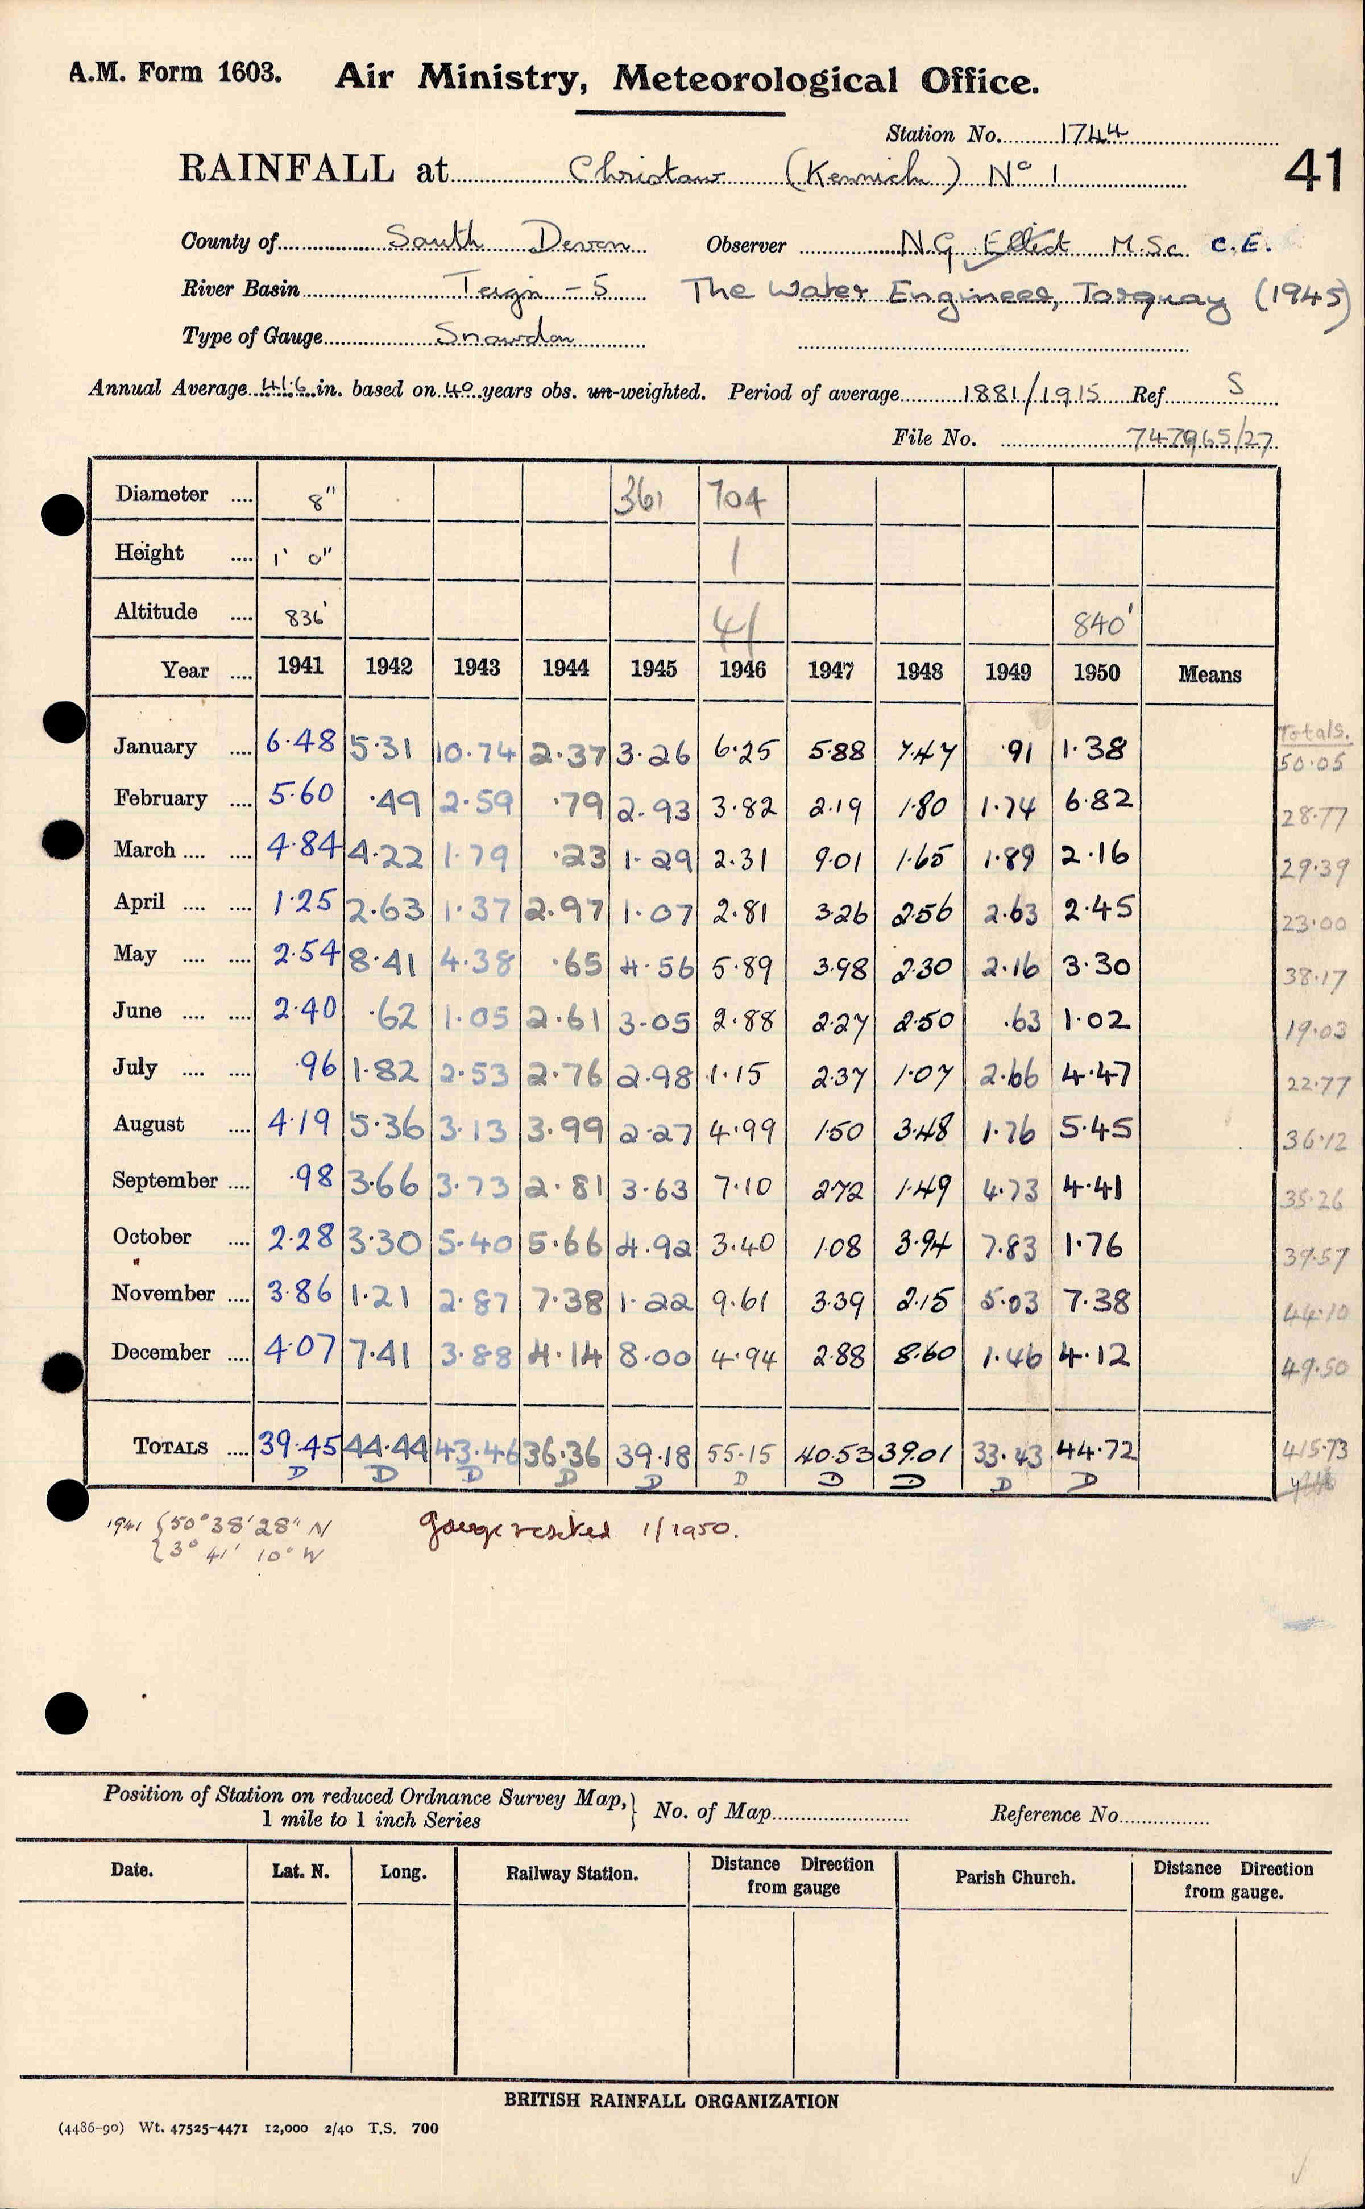 A.M. Form 1603. Air Ministry, Meteorological Office.
Station No. 1744
RAINFALL at Christow (Kennick) No 1 41
County of South Devon Observer N.G. Elliot M.Sc. C.E.
River Basin Teign - 5 The Water Engineer, Torquay (1945)
Type of Gauge Snowdon
Annual Average 41.6 in. based on 40 years obs. un-weighted. Period of average 1881/1915 Ref. S
File No. 747965/27
Diameter .... 8" 361 704
Height .... 1' 0" 1
Altitude .... 836' 41 840'
Year .... 1941 1942 1943 1944 1945 1946 1947 1948 1949 1950 Means
Totals.
January .... 6.48 5.31 10.74 2.37 3.26 6.25 5.88 7.47 .91 1.38 50.05
February .... 5.60 .49 2.59 .79 2.93 3.82 2.19 1.80 1.74 6.82 28.77
March .... .... 4.84 4.22 1.79 .23 1.29 2.31 9.01 1.65 1.89 2.16 29.39
April .... .... 1.25 2.63 1.37 2.97 1.07 2.81 3.26 2.56 2.63 2.45 23.00
May .... .... 2.54 8.41 4.38 .65 4.56 5.89 3.98 2.30 2.16 3.30 38.17
June .... .... 2.40 .62 1.05 2.61 3.05 2.88 2.27 2.50 .63 1.02 19.03
July .... .... .96 1.82 2.53 2.76 2.98 1.15 2.37 1.07 2.66 4.47 22.77
August .... 4.19 5.36 3.13 3.99 2.27 4.99 1.50 3.48 1.76 5.45 36.12
September .... .98 3.66 3.73 2.81 3.63 7.10 2.72 1.49 4.73 4.41 35.26
October .... 2.28 3.30 5.40 5.66 4.92 3.40 1.08 3.94 7.83 1.76 39.57
November .... 3.86 1.21 2.87 7.38 1.22 9.61 3.39 2.15 5.03 7.38 44.10
December .... 4.07 7.41 3.88 4.14 8.00 4.94 2.88 8.60 1.46 4.12 49.50
TOTALS .... 39.45 44.44 43.46 36.36 39.18 55.15 40.53 39.01 33.43 44.72 415.73
D D D D D D D D D D
1941 {50° 38' 28" N
{3° 41' 10" W
gauge resited 1/1950.
Position of Station on reduced Ordnance Survey Map,} No. of Map Reference No.
1 mile to 1 inch Series
Date. Lat. N. Long. Railway Station. Distance Direction from gauge Parish Church. Distance Direction from gauge.
BRITISH RAINFALL ORGANIZATION
(4486-90) Wt. 47525-4471 12,000 2/40 T.S. 700